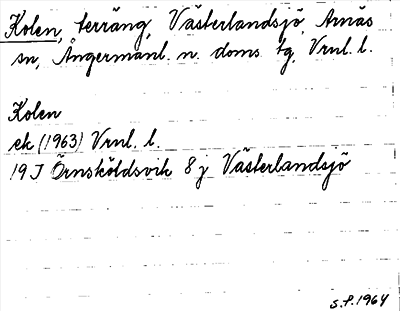 Kolen, terräng, Västerlandsjö, Arnäs
sn, Ångermanl. n. doms tg, Vrnl. l.
Kolen
ek (1963) Vrnl. l.
19 J Örnsköldsvik 8 j Västerlandsjö
S.P. 1964